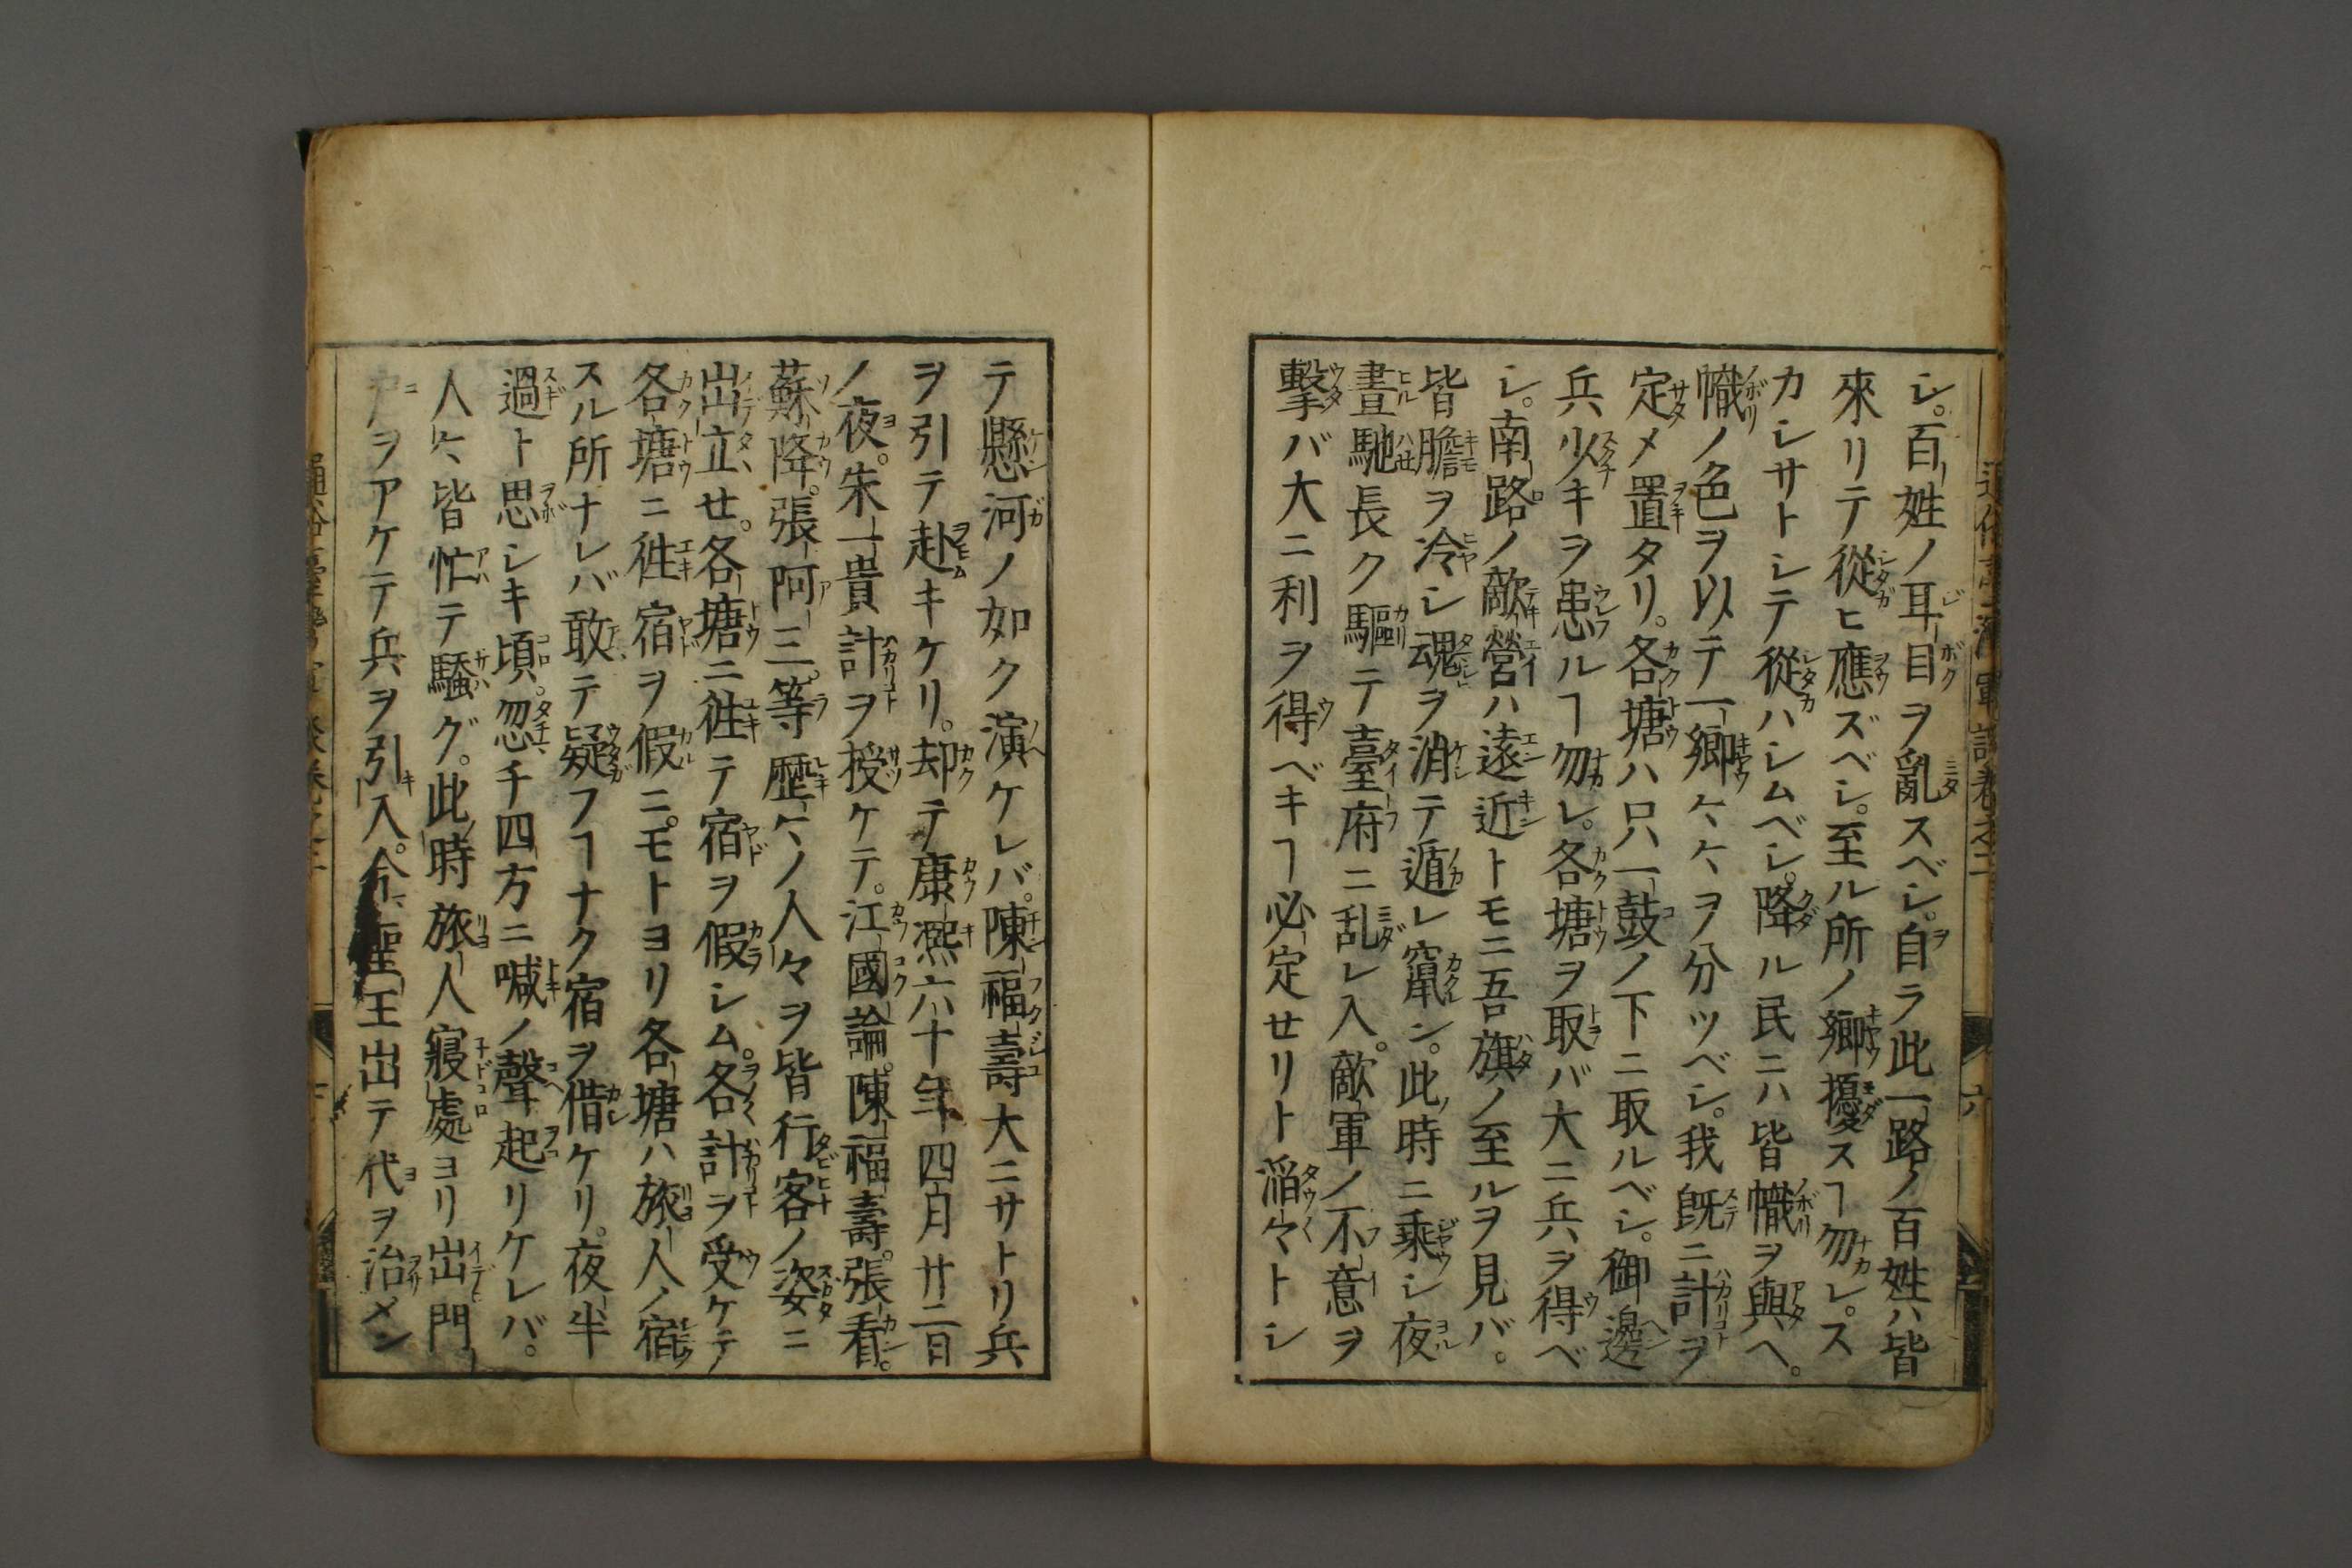 シ。百姓ノ耳目ヲ亂スベシ。自ラ此一路ノ百姓ハ皆
來リテ從ヒ應ズベシ。至ル所ノ鄉擾スヿ勿レ。ス
カシサトシテ從ハシムベシ。降ル民ニハ皆幟ヲ與ヘ。
幟ノ色ヲ以テ一鄉々々ヲ分ツベシ。我既ニ計ヲ
定メ置タリ。各塘ハ只一鼓ノ下ニ取ルベシ。御邊
兵少キヲ患ルヿ勿レ。各塘ヲ取バ大ニ兵ヲ得ベ
シ。南路ノ敵營ハ遠近トモニ吾旗ノ至ルヲ見バ。
皆膽ヲ冷シ魂ヲ消テ遁レ竄ン。此時ニ乘シ夜
晝馳長ク驅テ臺府ニ乱レ入。敵軍ノ不意ヲ
擊バ大ニ利ヲ得ベキヿ必定セリト滔々トシ
六
テ懸河ノ如ク演ケレバ。陳福壽大ニサトリ兵
ヲ引テ赴キケリ。却テ康熙六十年四月廿二日
ノ夜。朱一貴計ヲ授ケテ。江國論。陳福壽。張看。
蘇降。張阿三。等歷々ノ人々ヲ皆行客ノ姿ニ
出立せ。各塘ニ徃テ宿ヲ假シム。各計ヲ受ケテ
各塘ニ徃宿ヲ假ニ。モトヨリ各塘ハ旅人ノ宿
スル所ナレバ敢テ疑フヿナク宿ヲ借ケリ。夜半
過ト思シキ頃。忽チ四方ニ喊ノ聲起リケレバ。
人々皆忙テ騷グ。此時旅人寢處ヨリ出門
戸ヲアケテ兵ヲ引入。今聖王出テ代ヲ治メン